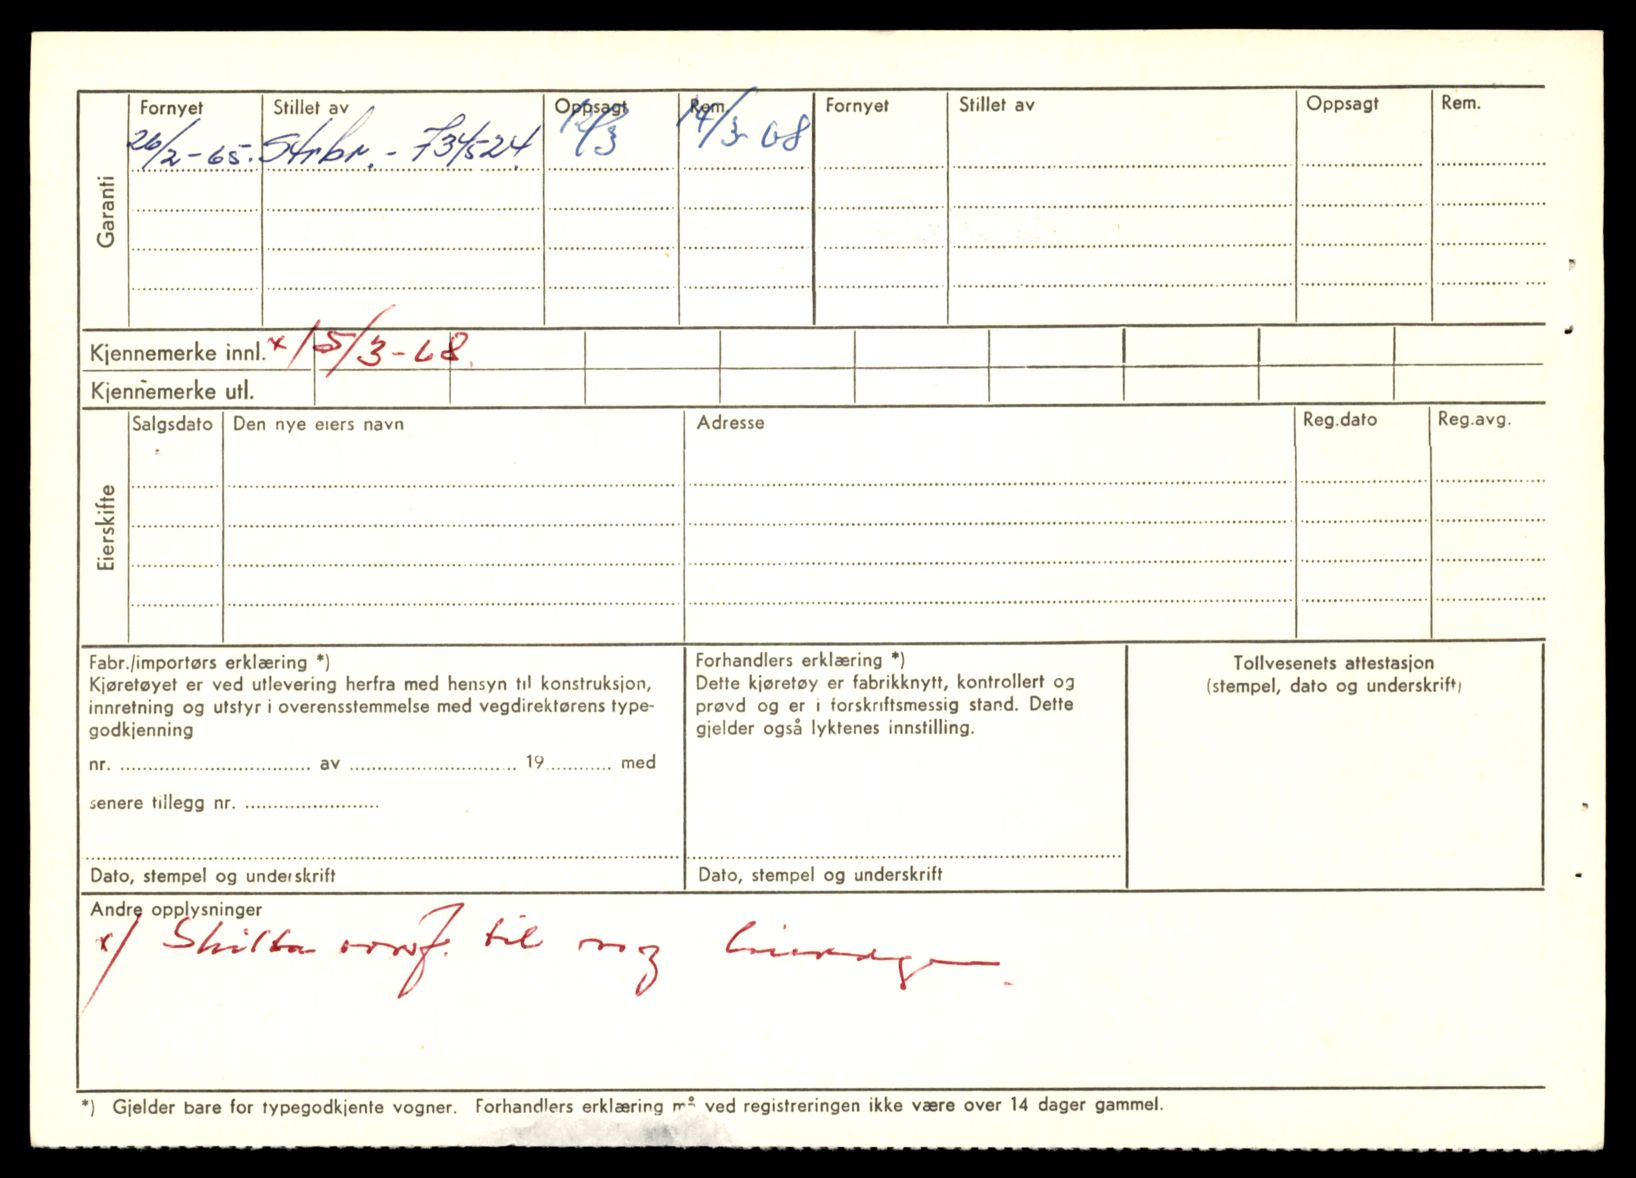 Fornyet Stillet av Oppsagt Rem. Fornyet Stillet av Oppsagt Rem.
26/2-65. Strbr. - 734524 12/3 14/3-68
Garanti
Kjennemerke innl. x/ 15/3-68.
Kjennemerke utl.
Salgsdato Den nye eiers navn Adresse Reg.dato Reg.avg.
Eierskifte
Fabr./importørs erklæring *)
Kjøretøyet er ved utlevering herfra med hensyn til konstruksjon,
innretning og utstyr i overensstemmelse med vegdirektørens type-
godkjenning
nr. av 19 med
senere tillegg nr.
Dato, stempel og underskrift
Forhandlers erklæring *)
Dette kjøretøy er fabrikknytt, kontrollert og
prøvd og er i forskriftsmessig stand. Dette
gjelder også lyktenes innstilling.
Dato, stempel og underskrift
Tollvesenets attestasjon
(stempel, dato og underskrift)
Andre opplysninger
x/ Skilta overf. til ny
*) Gjelder bare for typegodkjente vogner. Forhandlers erklæring må ved registreringen ikke være over 14 dager gammel.